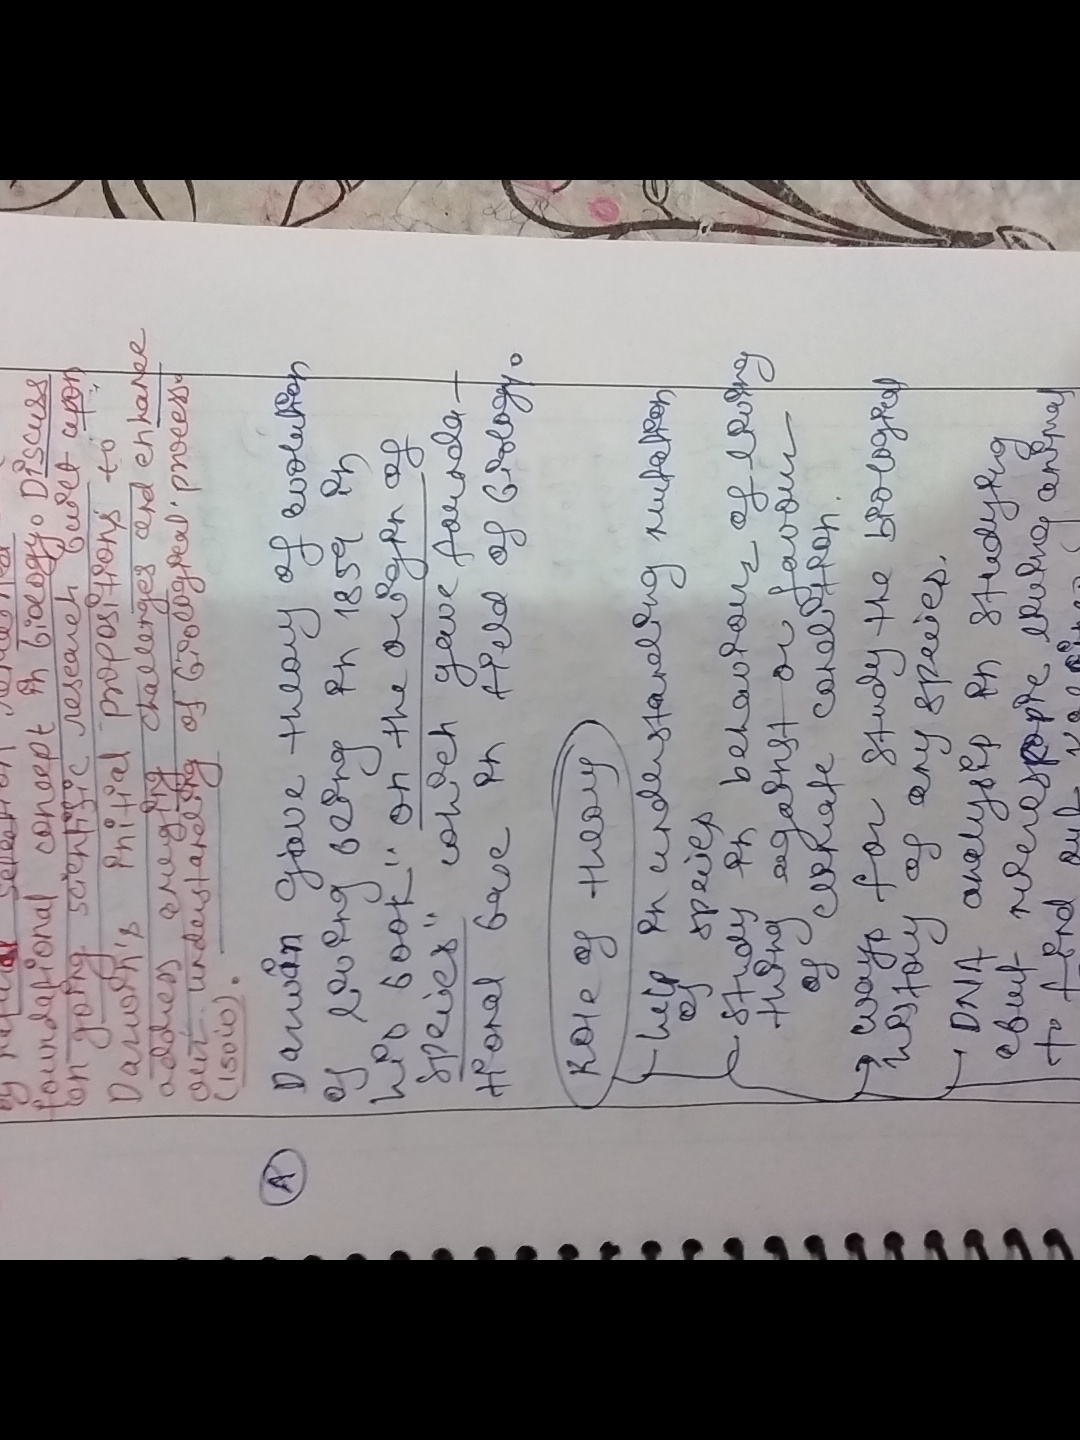 foundational concept in biology. Discuss
on going scientific research built upon
Darwin's initial propositions to
address emerging challenges and enhance
our understanding of biological process.
(150w).
(A) Darwin gave theory of evolution
of living being in 1859 in
his book "on the origin of
species" which gave founda-
tional base in field of biology.
Role of theory
help in understanding mutation
of species
study in behaviour of living
thing against or favour
of climate condition.
ways for study the biological
history of any species.
DNA analysis in studying
living animal
to find out